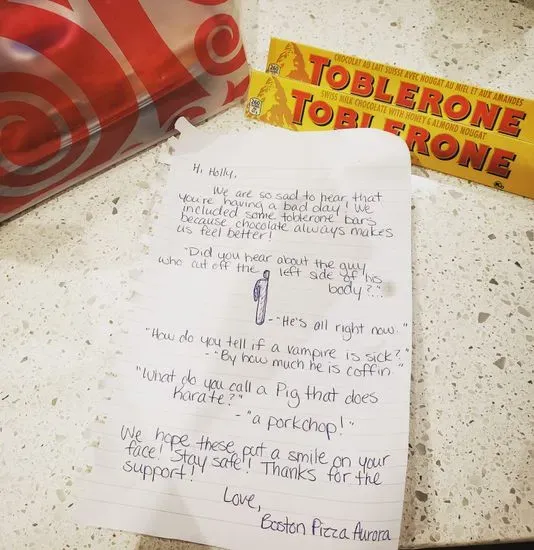 CHOCOLAT AU LAIT SUISSE AVEC NOUGAT AU MIEL ET AUX AMANDES
TOBLERONE
SWISS MILK CHOCOLATE WITH HONEY & ALMOND NOUGAT
TOBLERONE
Hi Holly,
We are so sad to hear, that
you're having a bad day! We
included some toblerone bars
because chocolate always makes
us feel better!
"Did you hear about the guy
who cut off the left side of his
body?...
--"He's all right now."
"How do you tell if a vampire is sick?"
--"By how much he is coffin."
"What do you call a Pig that does
Karate?"
- "a porkchop!"
We hope these put a smile on your
face! Stay safe! Thanks for the
support!
Love,
Boston Pizza Aurora